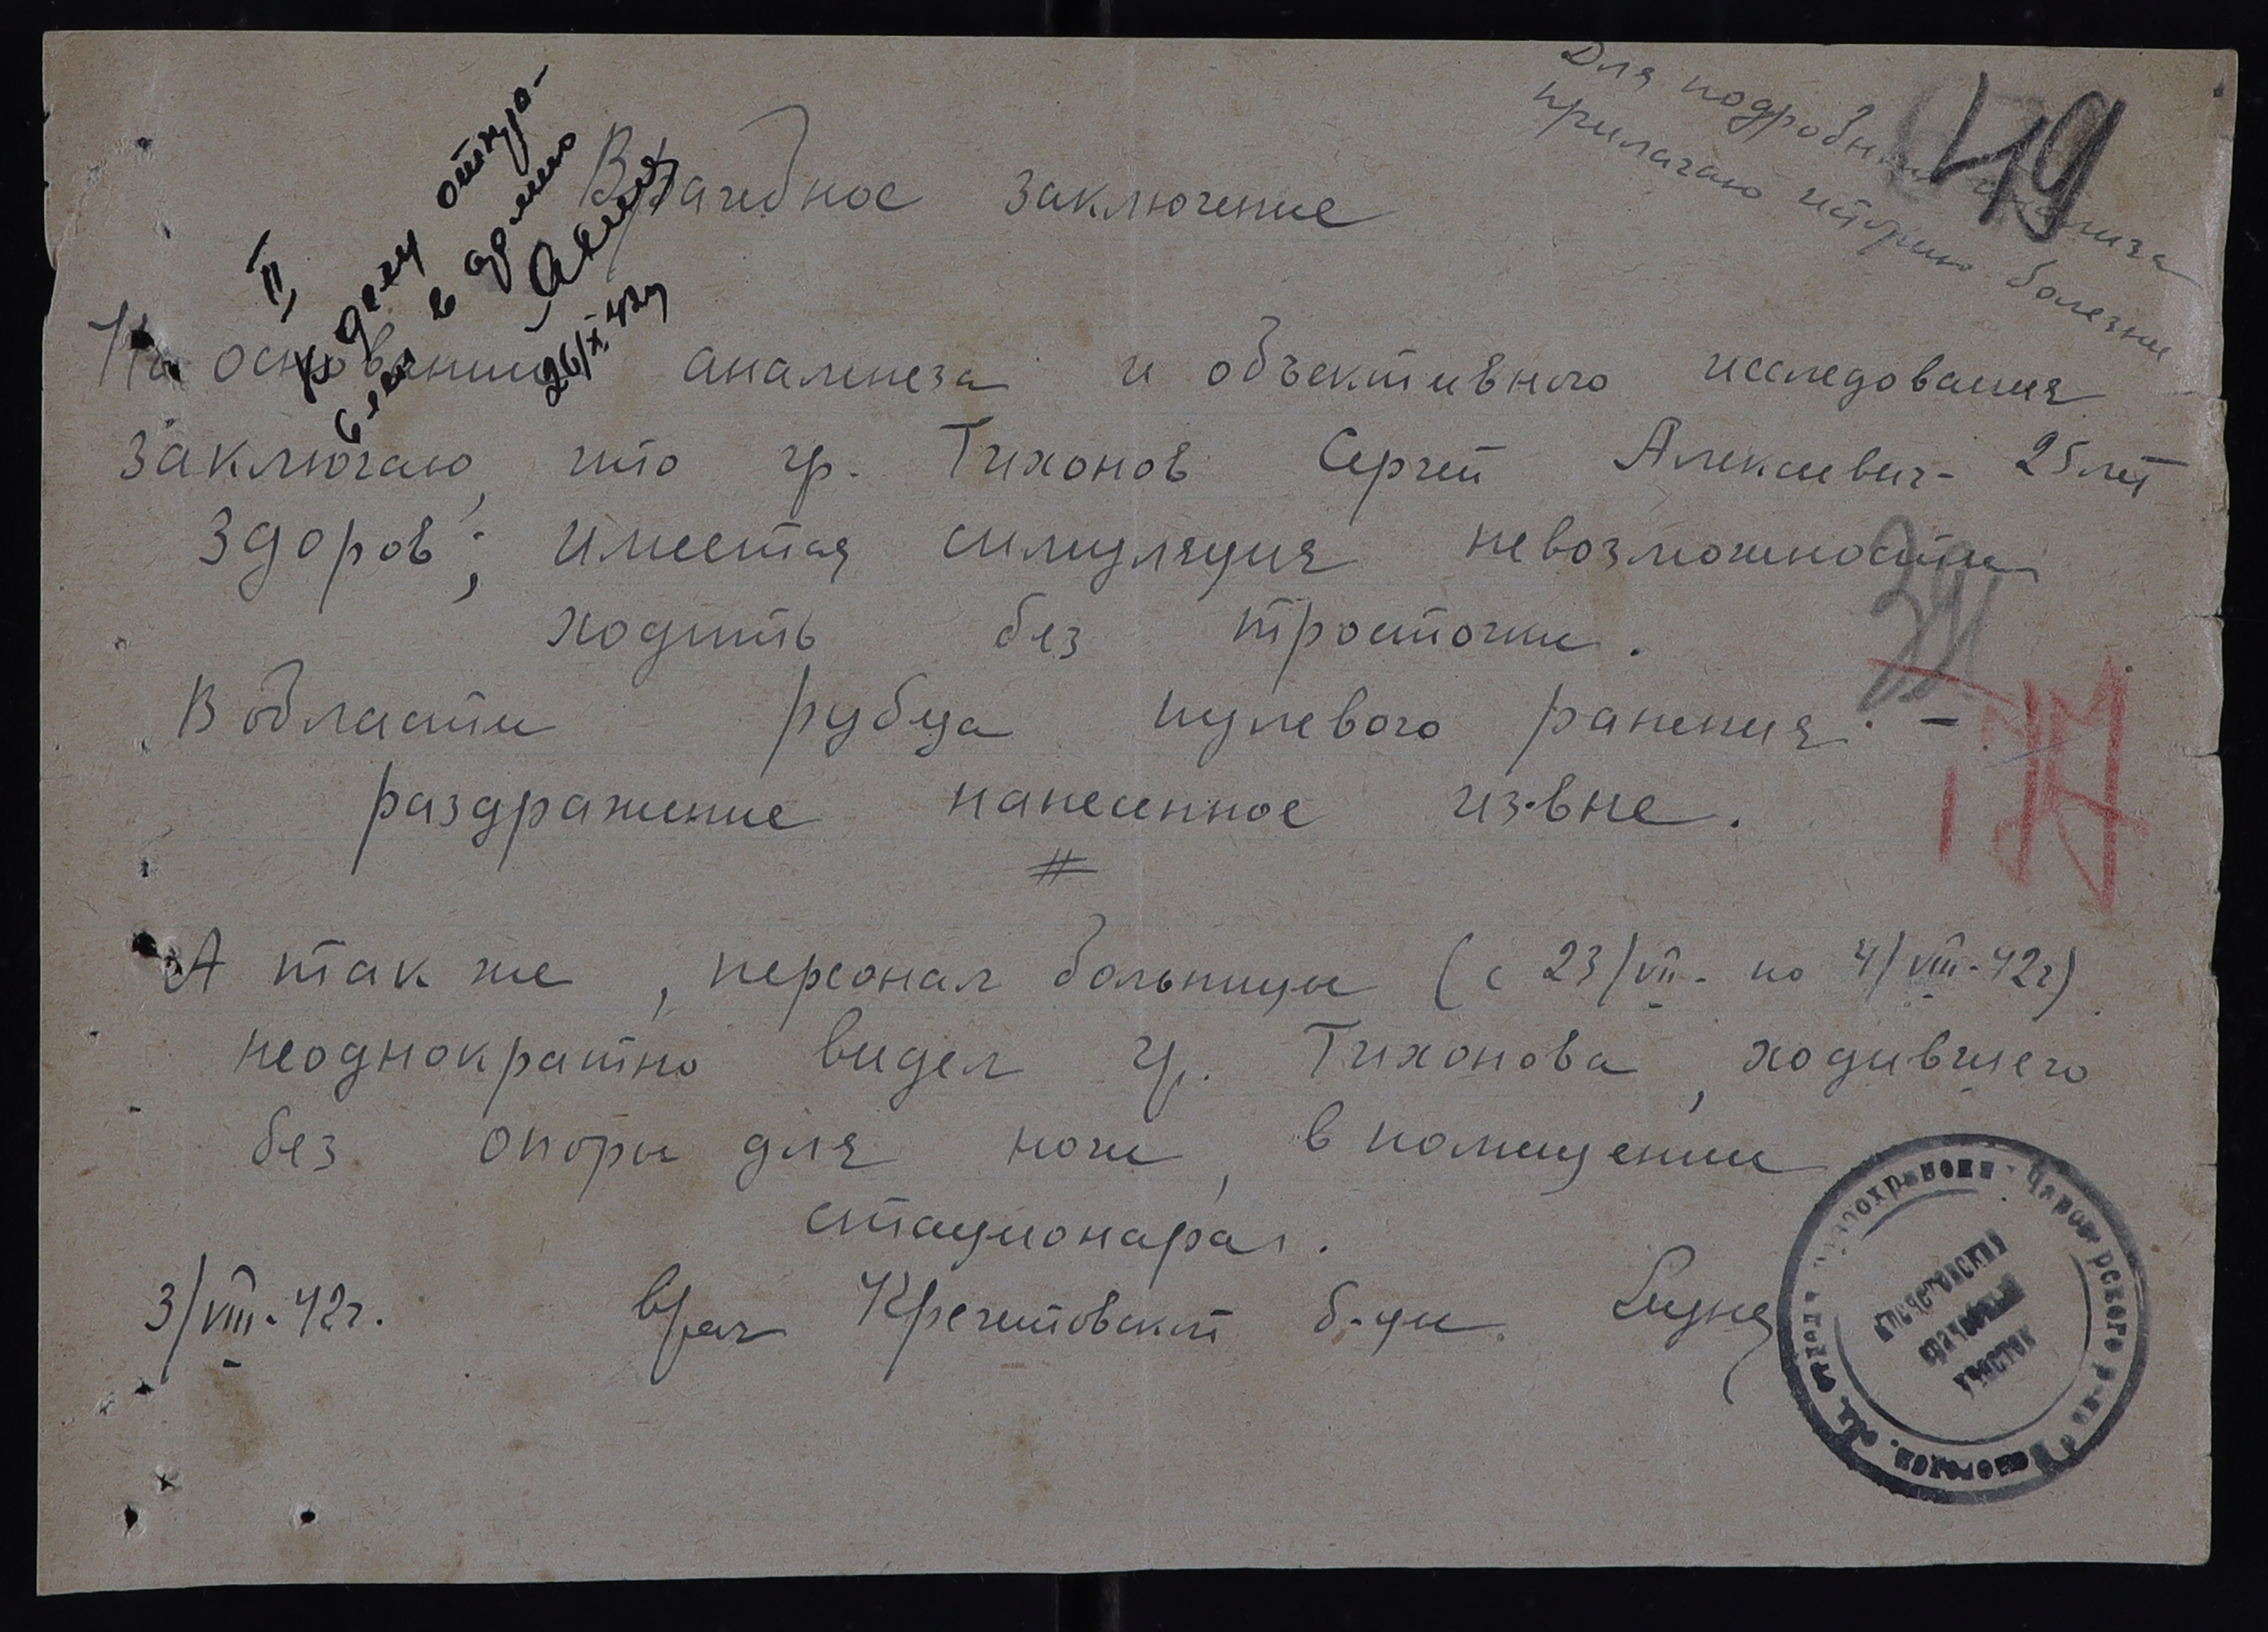 Для подробного анализа
прилагаю историю болезни
49
II
К делу
в армию
26/X 42г
Врачебное заключение
На основании анамнеза и объективного исследования
заключаю, что гр. Тихонов Сергей Алексеевич - 25 лет
здоров; имеется симуляция невозможности
ходить без тросточки.
В области рубца пулевого ранения -
раздражение нанесенное из-вне.
А так же, персонал больницы (с 23/VII - по 4/VIII - 42г)
неоднократно видел гр. Тихонова, ходившего
без опоры для ноги, в помещении
стационара.
3/VIII - 42г. врач Кречетовской б-цы.
Кречетовский
врачебный
участок